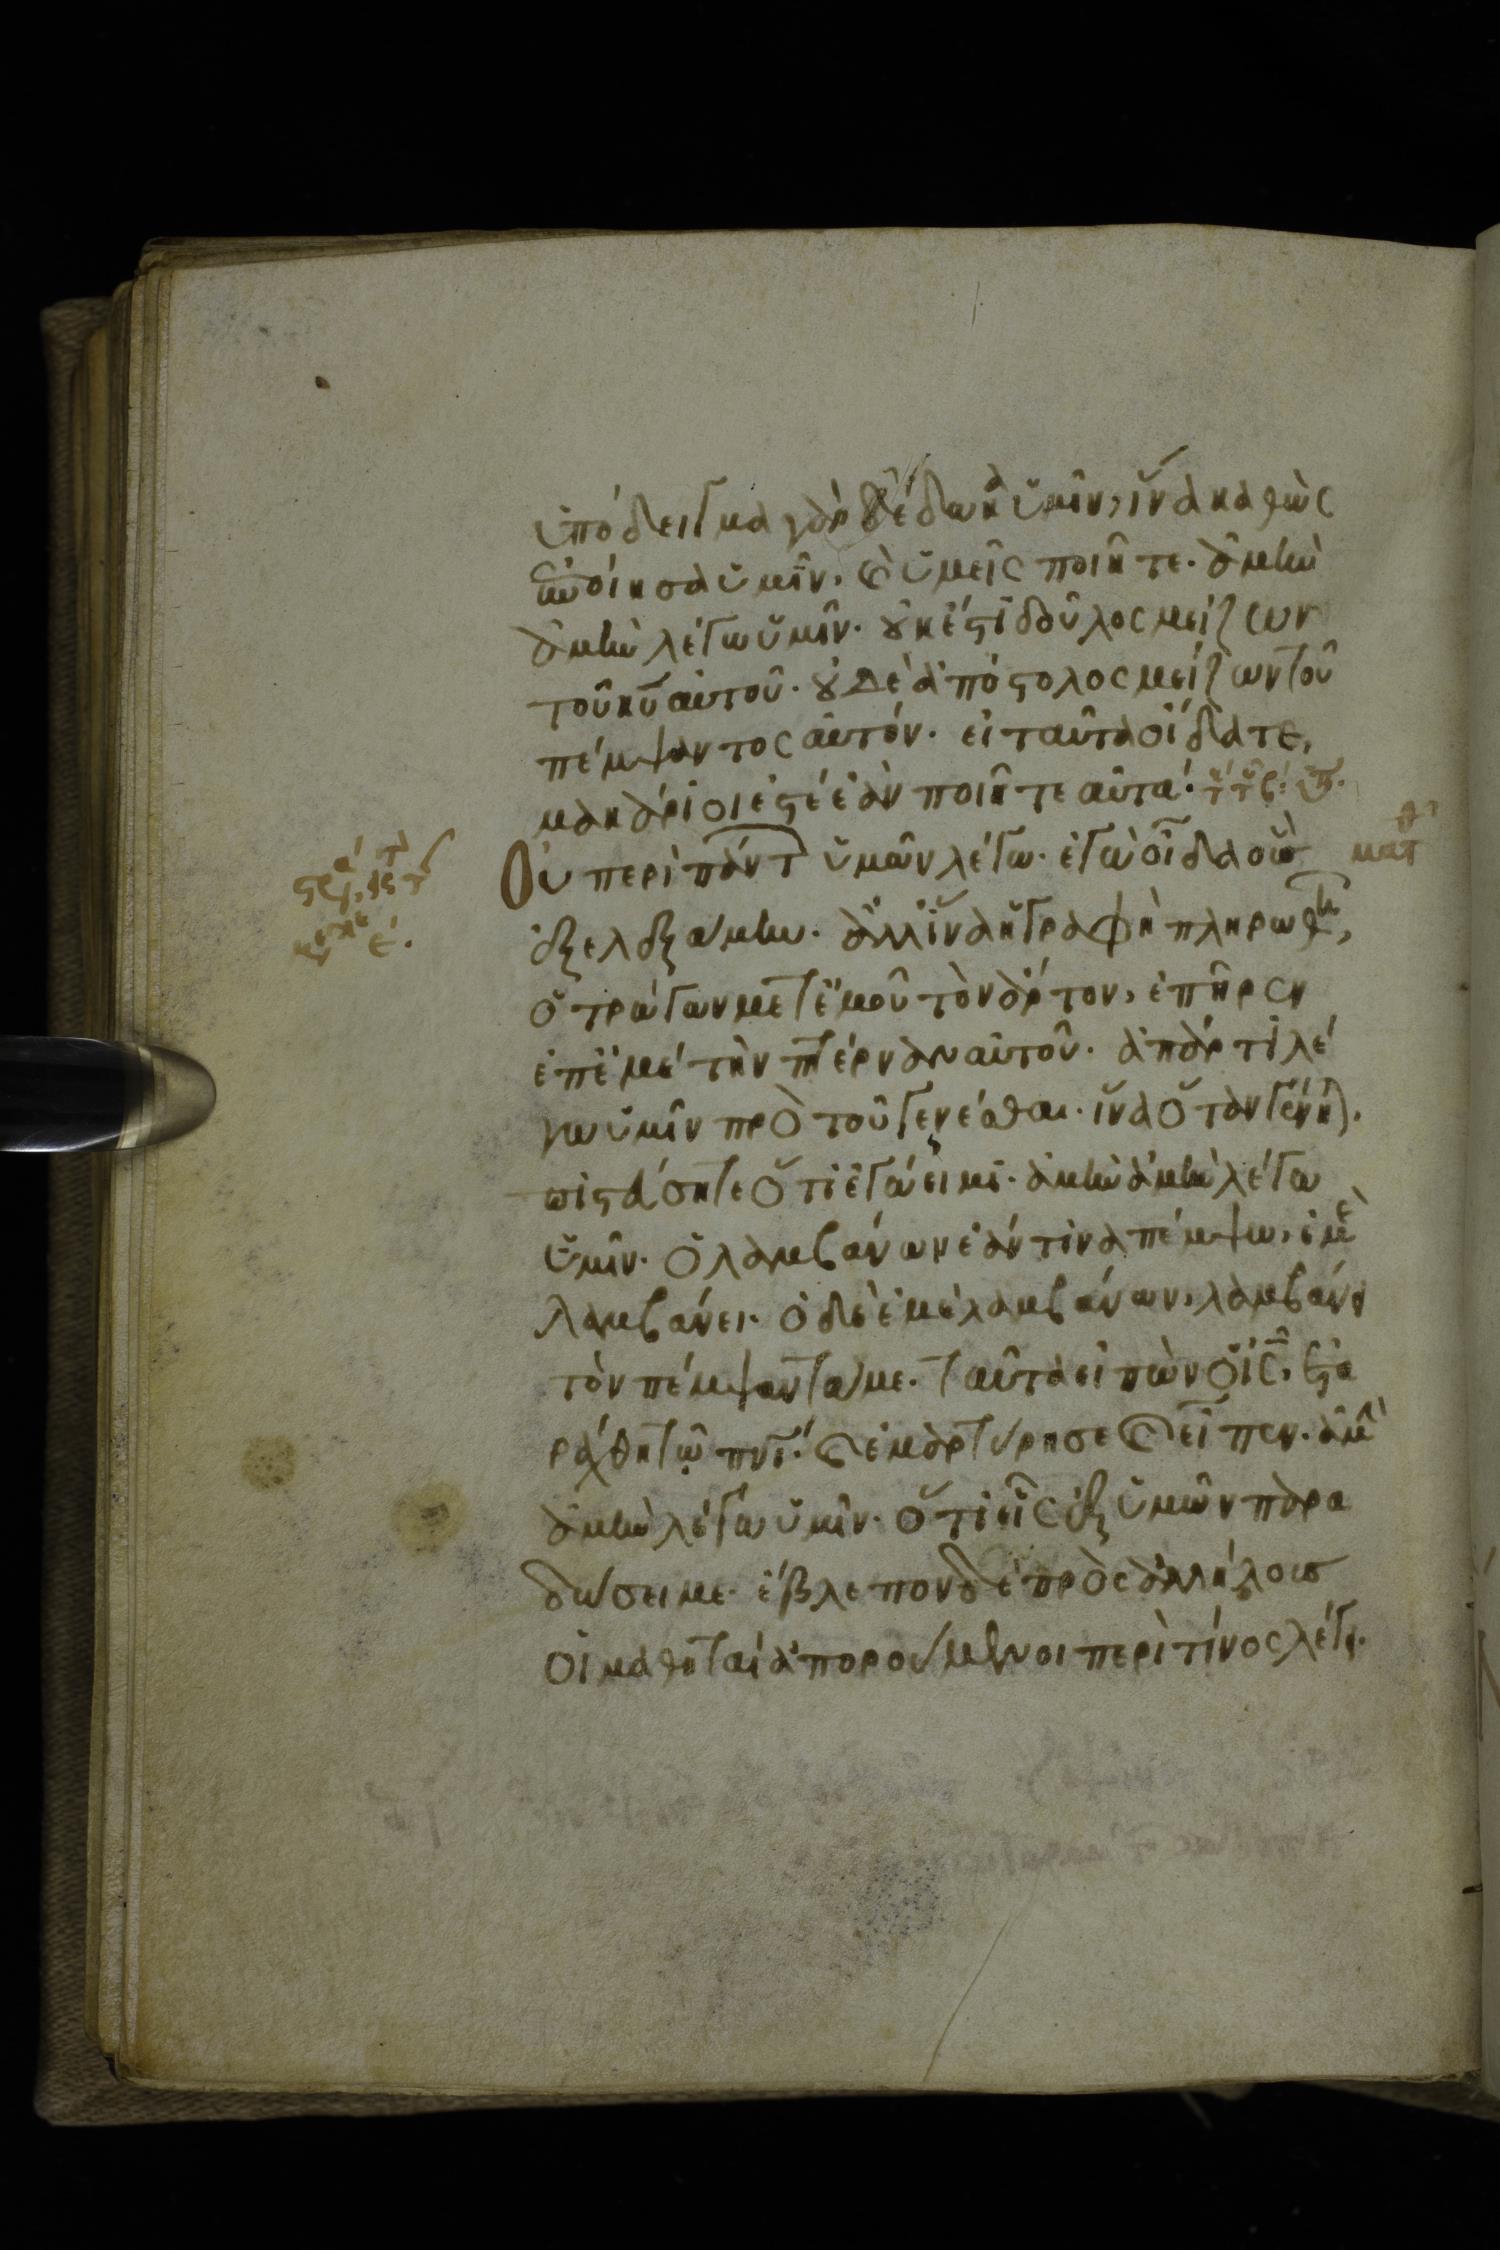 ὑπόδειγμα γὰρ δέδωκα ὑμῖν, ἵνα καθὼς
ἐποίησα ὑμῖν. καὶ ὑμεῖς ποιῆτε. ἀμὴν
ἀμὴν λέγω ὑμῖν. οὐκ ἔστι δοῦλος μείζων
τοῦ κυ αὐτοῦ. οὐδὲ ἀπόστολος μείζων τοῦ
πέμψαντος αὐτόν. εἰ ταῦτα οἴδατε,
μακάριοί ἐστε ἐὰν ποιῆτε αὐτά.
Οὐ περὶ πάντ ὑμῶν λέγω. ἐγὼ οἶδα οὓς
ἐξελεξάμην. ἀλλ ἵνα ἡ γραφὴ πληρωθῆ,
ὁ τρώγων μετ ἐμοῦ τὸν ἄρτον, ἐπῆρεν
ἐπ ἐμὲ τὴν πτέρναν αὐτοῦ. ἀπάρτι λέ
γω ὑμῖν πρὸ τοῦ γενέσθαι. ἵνα ὅταν γένη).
πιστεύσητε ὅτι ἐγώ εἰμι. ἀμὴν ἀμὴν λέγω
ὑμῖν. ὁ λαμβάνων ἐάν τινα πέμψω, ἐμὲ
λαμβάνει. ὁ δὲ ἐμὲ λαμβάνων, λαμβάνει
τὸν πέμψαντά με. ταῦτα εἰπὼν ὁ ις, ἐτα
ράχθη τῶ πνι. καὶ ἐμαρτύρησε καὶ εἶπεν. ἀμὴ
ἀμὴν λέγω ὑμῖν. ὅτι εἷς ἐξ ὑμῶν παρα
δώσει με. ἔβλεπον δὲ πρὸς ἀλλήλους
οἱ μαθηταὶ ἀπορούμενοι περὶ τίνος λέγει.